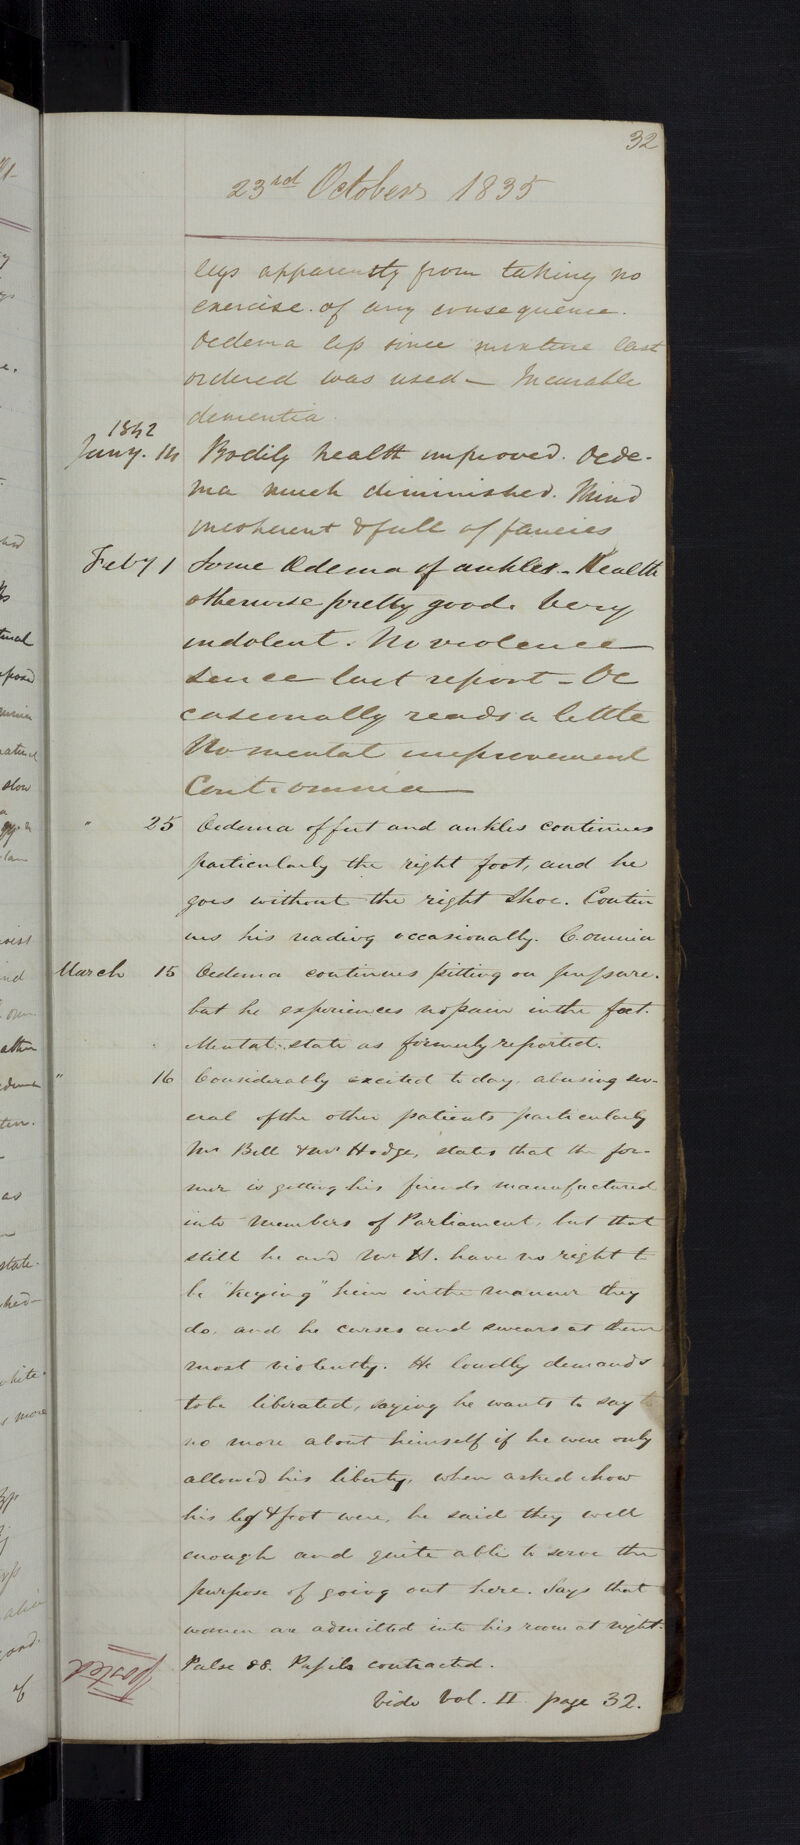 32
23rd October 1835
legs apparently from taking no
exercise of any consequence.
Oedema less since mixture last
ordered was used — Incurable
dementia.
1842
Jany. 14 Bodily health improved. Oede-
ma much diminished. Mind
incoherent & full of fancies
Feby 1 Some Oedema of ankles - Health
otherwise pretty good. Very
indolent. No violence
since last report - Oc
casionally reads a little
No mental improvement
Cont. omnia
" 25 Oedema of feet and ankles continues
particularly the right foot, and he
goes without the right Shoe. Contin
ues his reading occasionally. C. omnia
March 15 Oedema continues pitting on pressure.
but he experiences no pain in the feet.
Mental state as formerly reported.
" 16 Considerably excited to day, abusing sev-
eral of the other patients particularly
Mr Bell & Mr Hodge, states that the for-
mer is getting his friends manufactured
into Members of Parliament, but that
still he and Mr H. have no right to
be "keying" him in the manner they
do, and he curses and swears at them
most violently. He loudly demands
to be liberated, saying he wants to say
no more about himself if he were only
allowed his liberty, when asked how
his leg & foot were, he said they well
enough and quite able to serve the
purpose of going out here. Says that
women are admitted into his room at night.
Pulse 88. Pupils contracted.
Posted
Vide Vol. II page 32.